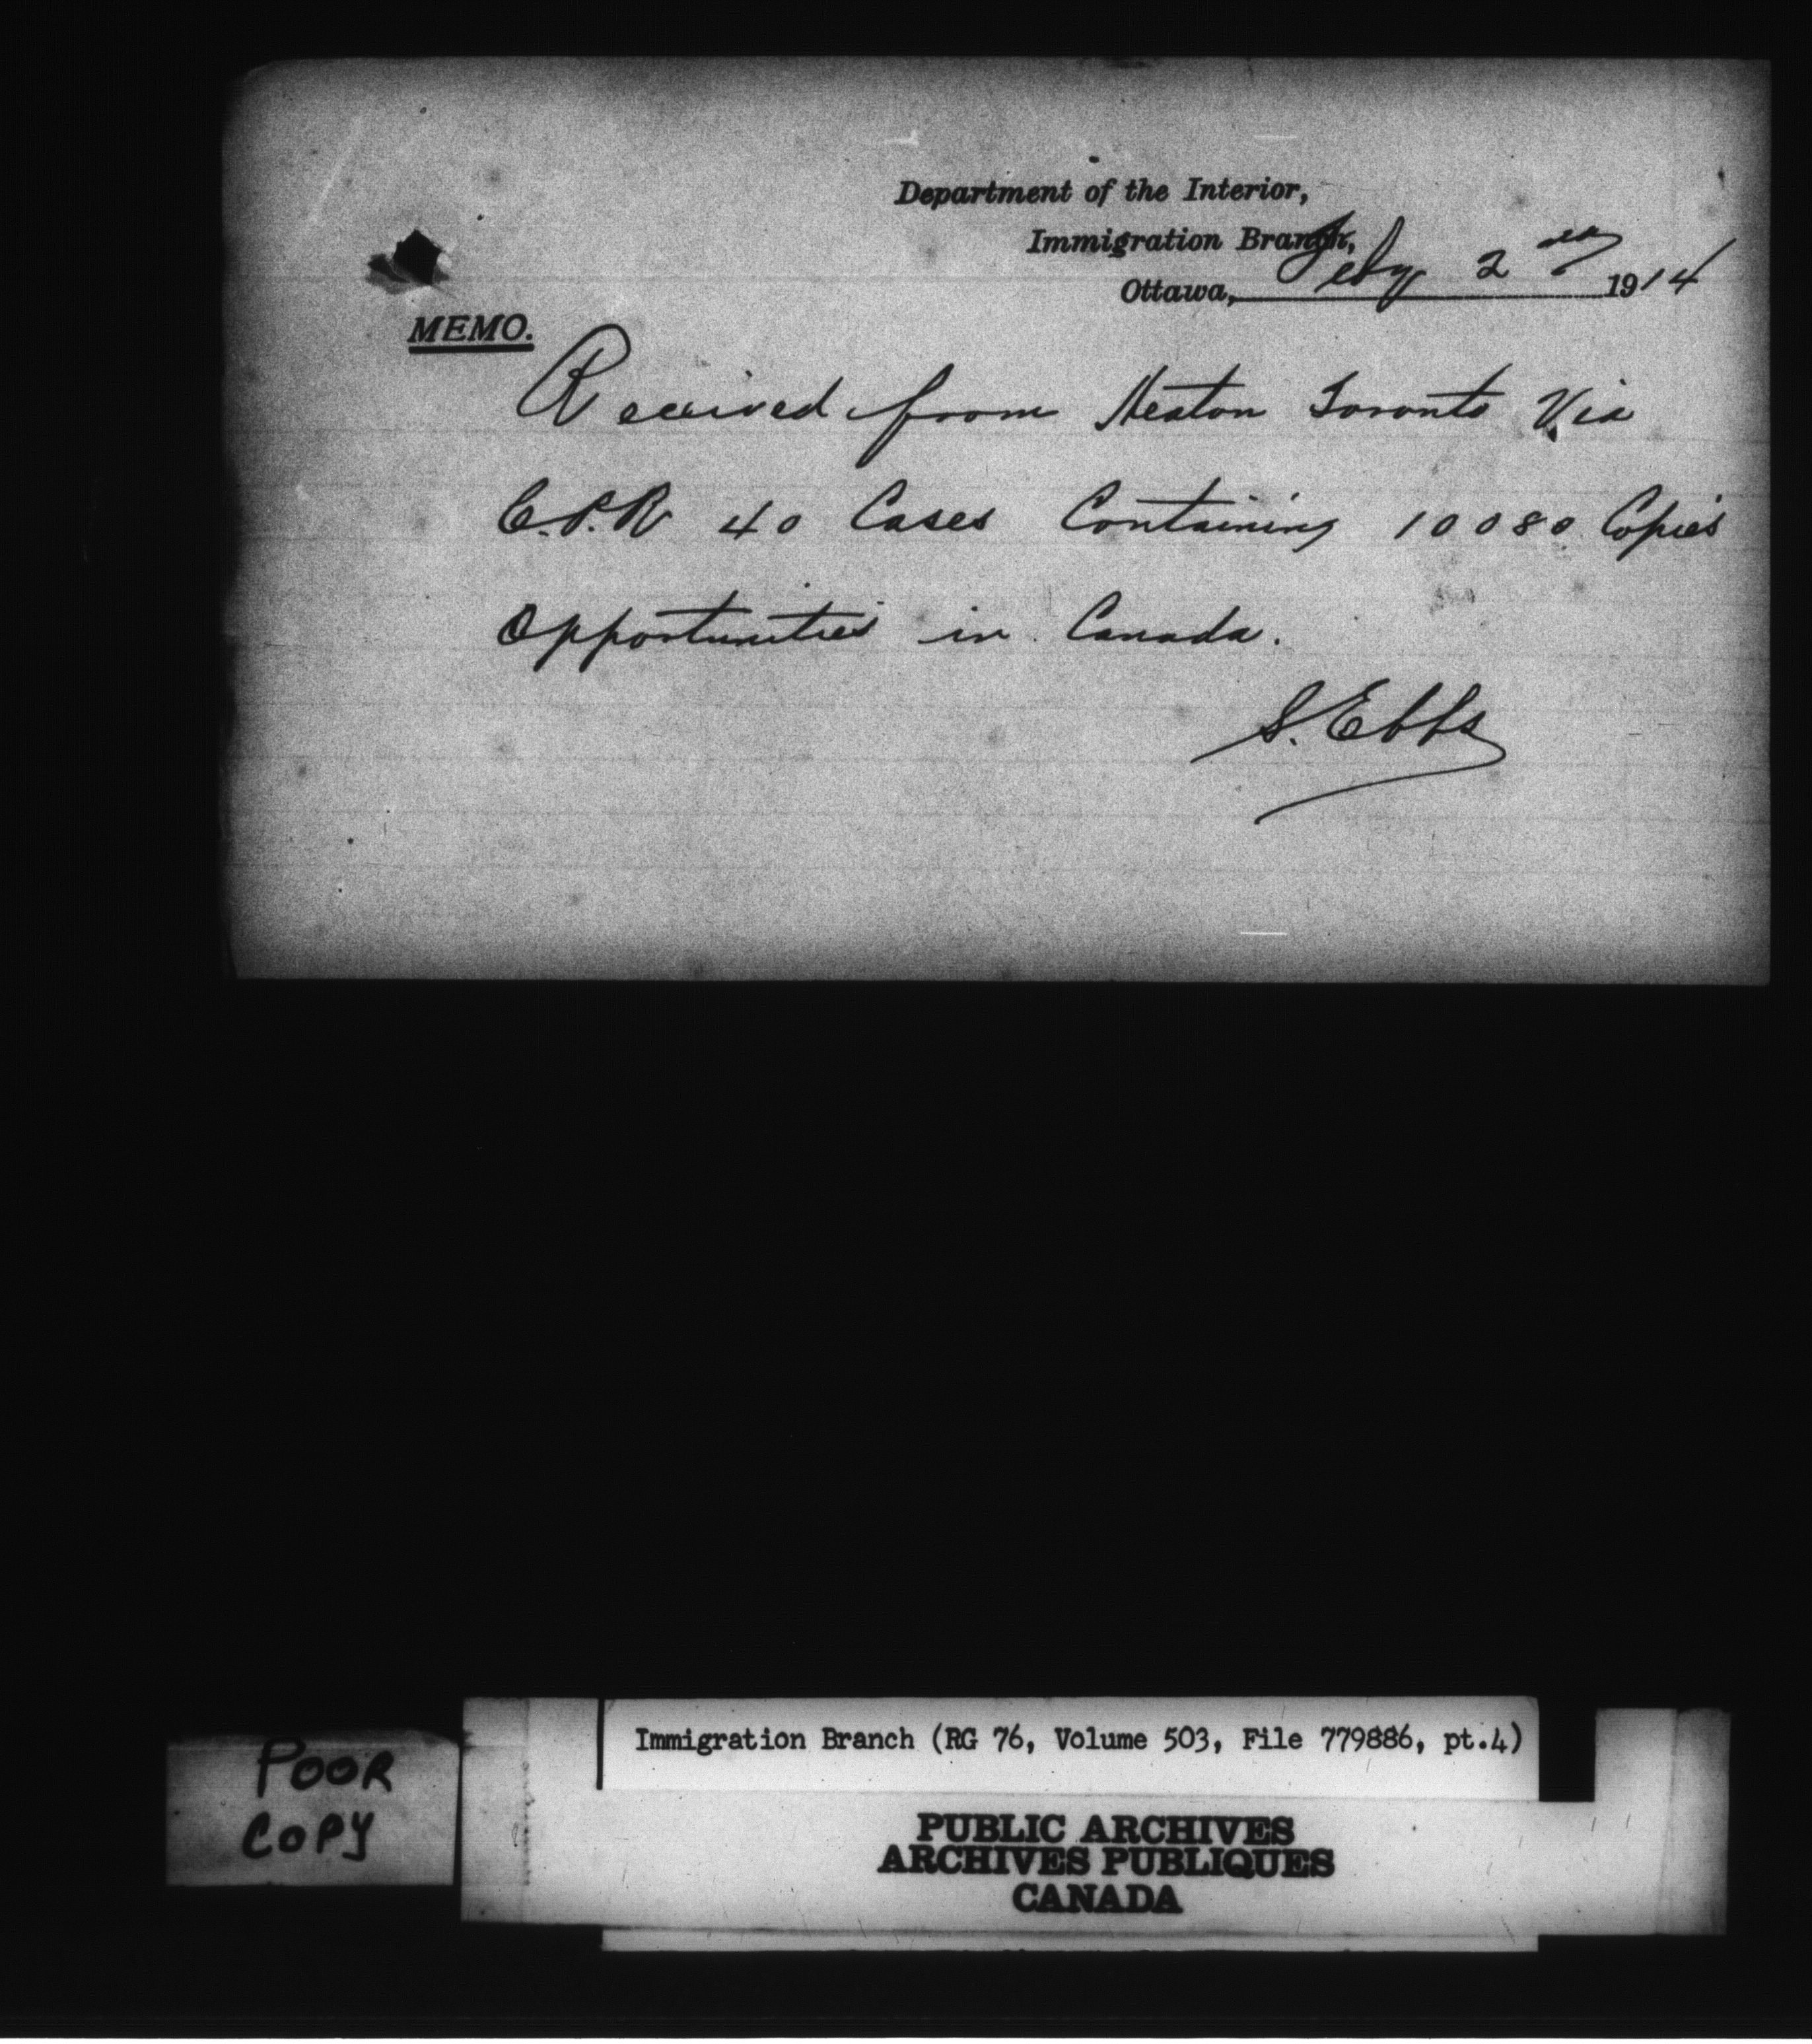 Department of the Interior,
Immigration Branch,
Ottawa, Feby 2nd 1914
MEMO.
Received from Heaton Toronto Via
C.P.R 40 Cases Containing 10080 Copies
Opportunities in Canada.
S. Ebbs
POOR
COPY
Immigration Branch (RG 76, Volume 503, File 779886, pt.4)
PUBLIC ARCHIVES
ARCHIVES PUBLIQUES
CANADA